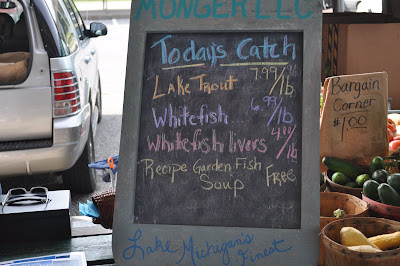 MONGER LLC
Today's Catch
Lake Trout 7.99/lb
Whitefish 6.99/lb
Whitefish livers 4.00/lb
Recipe: Garden Fish Soup Free
Lake Michigan's Finest
Bargain
Corner
$1.00